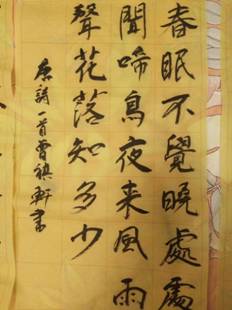 春眠不覺曉處處
聞啼鳥夜来風雨
聲花落知多少
唐詩一首曹祺軒書